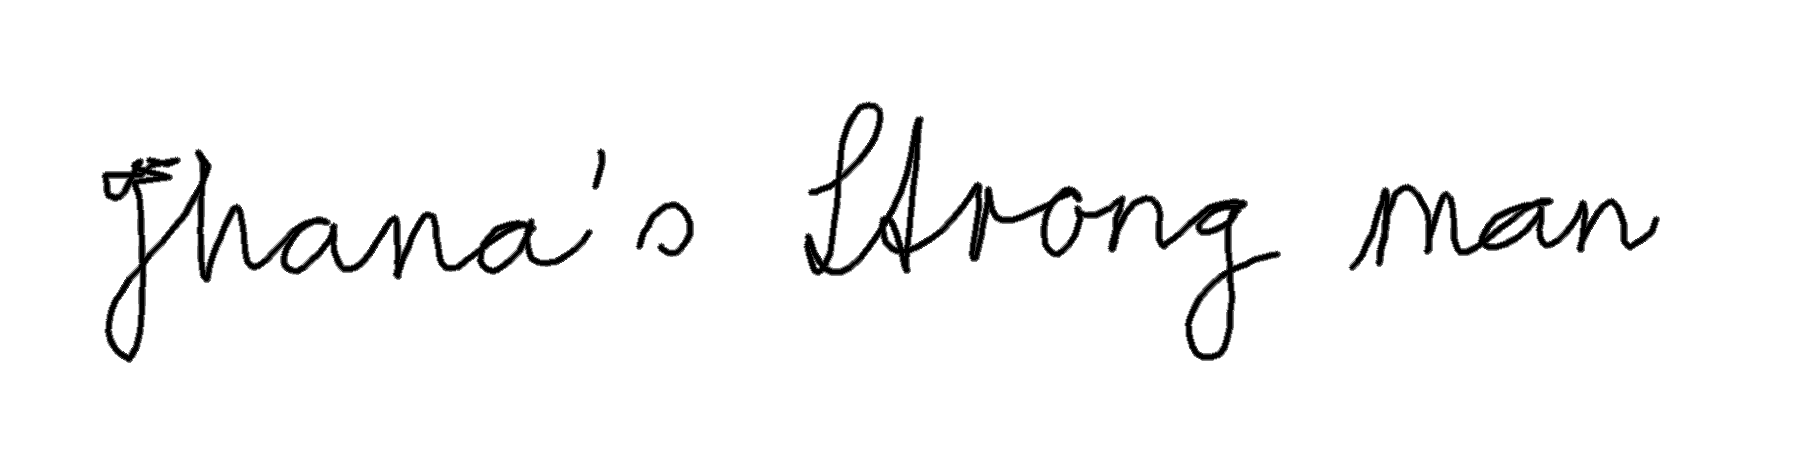 Ghana's Strong man